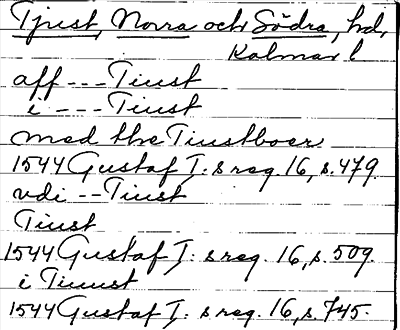 Tjust, Norra och Södra, hd,
Kalmar l
aff --- Tiust
i --- Tiust
med the Tiustboer
1544 Gustaf I:s reg. 16, s. 479.
vdi -- Tiust
Tiust
1544 Gustaf I:s reg. 16, s. 509.
i Tiuust
1544 Gustaf I:s reg. 16, s. 745.